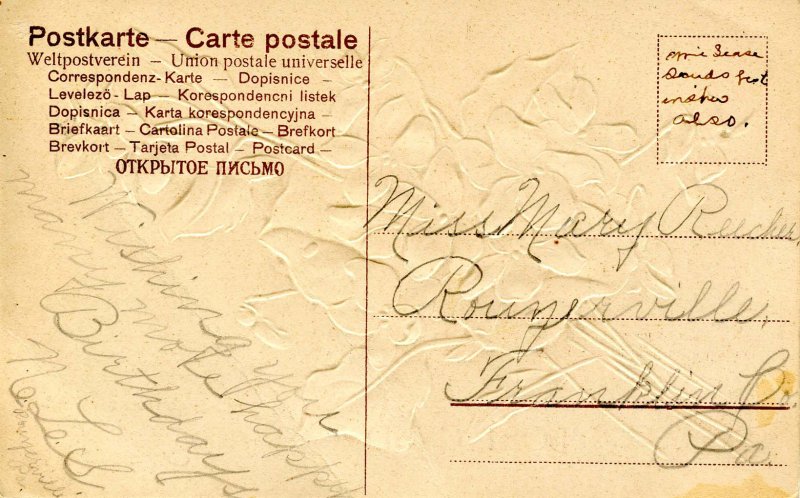 Postkarte — Carte postale
Weltpostverein — Union postale universelle
Correspondenz-Karte — Dopisnice —
Levelező-Lap — Korespondencni listek
Dopisnica — Karta korespondencyjna —
Briefkaart — Cartolina Postale — Brefkort
Brevkort — Tarjeta Postal — Postcard —
ОТКРЫТОЕ ПИСЬМО
also.
Miss Mary Reecher
Rouzerville
Franklin Co.
Pa.
Wishing you
many more happy
Birthdays